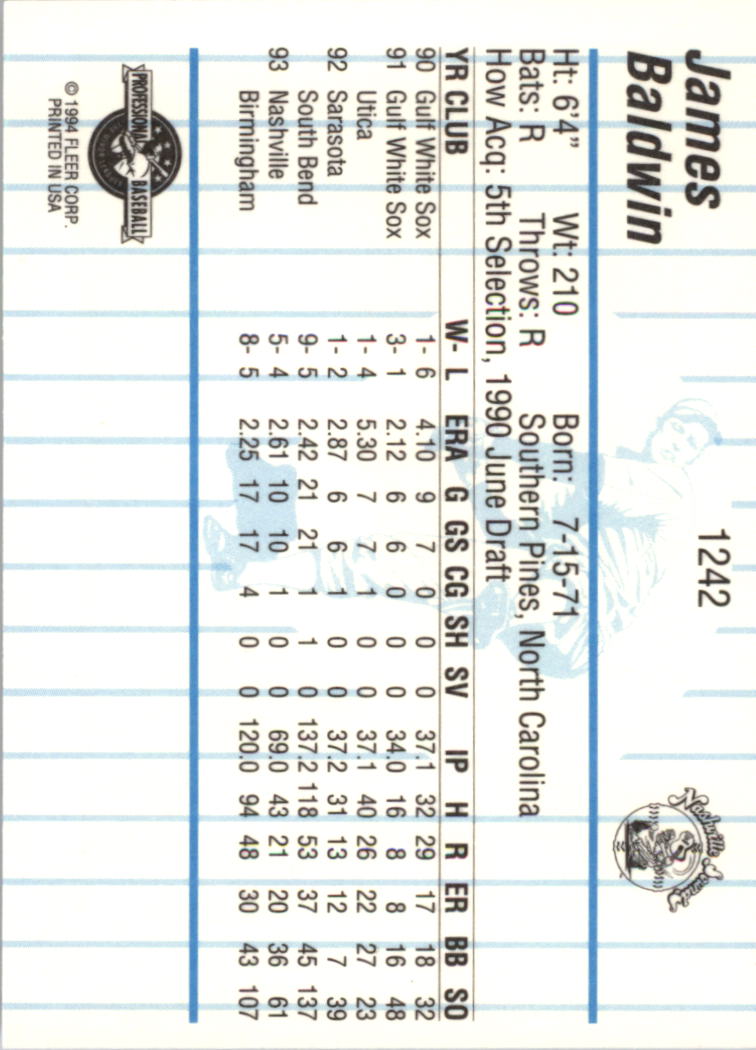 James
Baldwin
1242
Nashville Sounds
Ht: 6'4" Wt: 210 Born: 7-15-71
Bats: R Throws: R Southern Pines, North Carolina
How Acq: 5th Selection, 1990 June Draft
YR CLUB W- L ERA G GS CG SH SV IP H R ER BB SO
90 Gulf White Sox 1- 6 4.10 9 7 0 0 0 37.1 32 29 17 18 32
91 Gulf White Sox 3- 1 2.12 6 6 0 0 0 34.0 16 8 8 16 48
Utica 1- 4 5.30 7 7 1 0 0 37.1 40 26 22 27 23
92 Sarasota 1- 2 2.87 6 6 1 0 0 37.2 31 13 12 7 39
South Bend 9- 5 2.42 21 21 1 1 0 137.2 118 53 37 45 137
93 Nashville 5- 4 2.61 10 10 1 0 0 69.0 43 21 20 36 61
Birmingham 8- 5 2.25 17 17 4 0 0 120.0 94 48 30 43 107
PROFESSIONAL BASEBALL
© 1994 FLEER CORP.
PRINTED IN USA